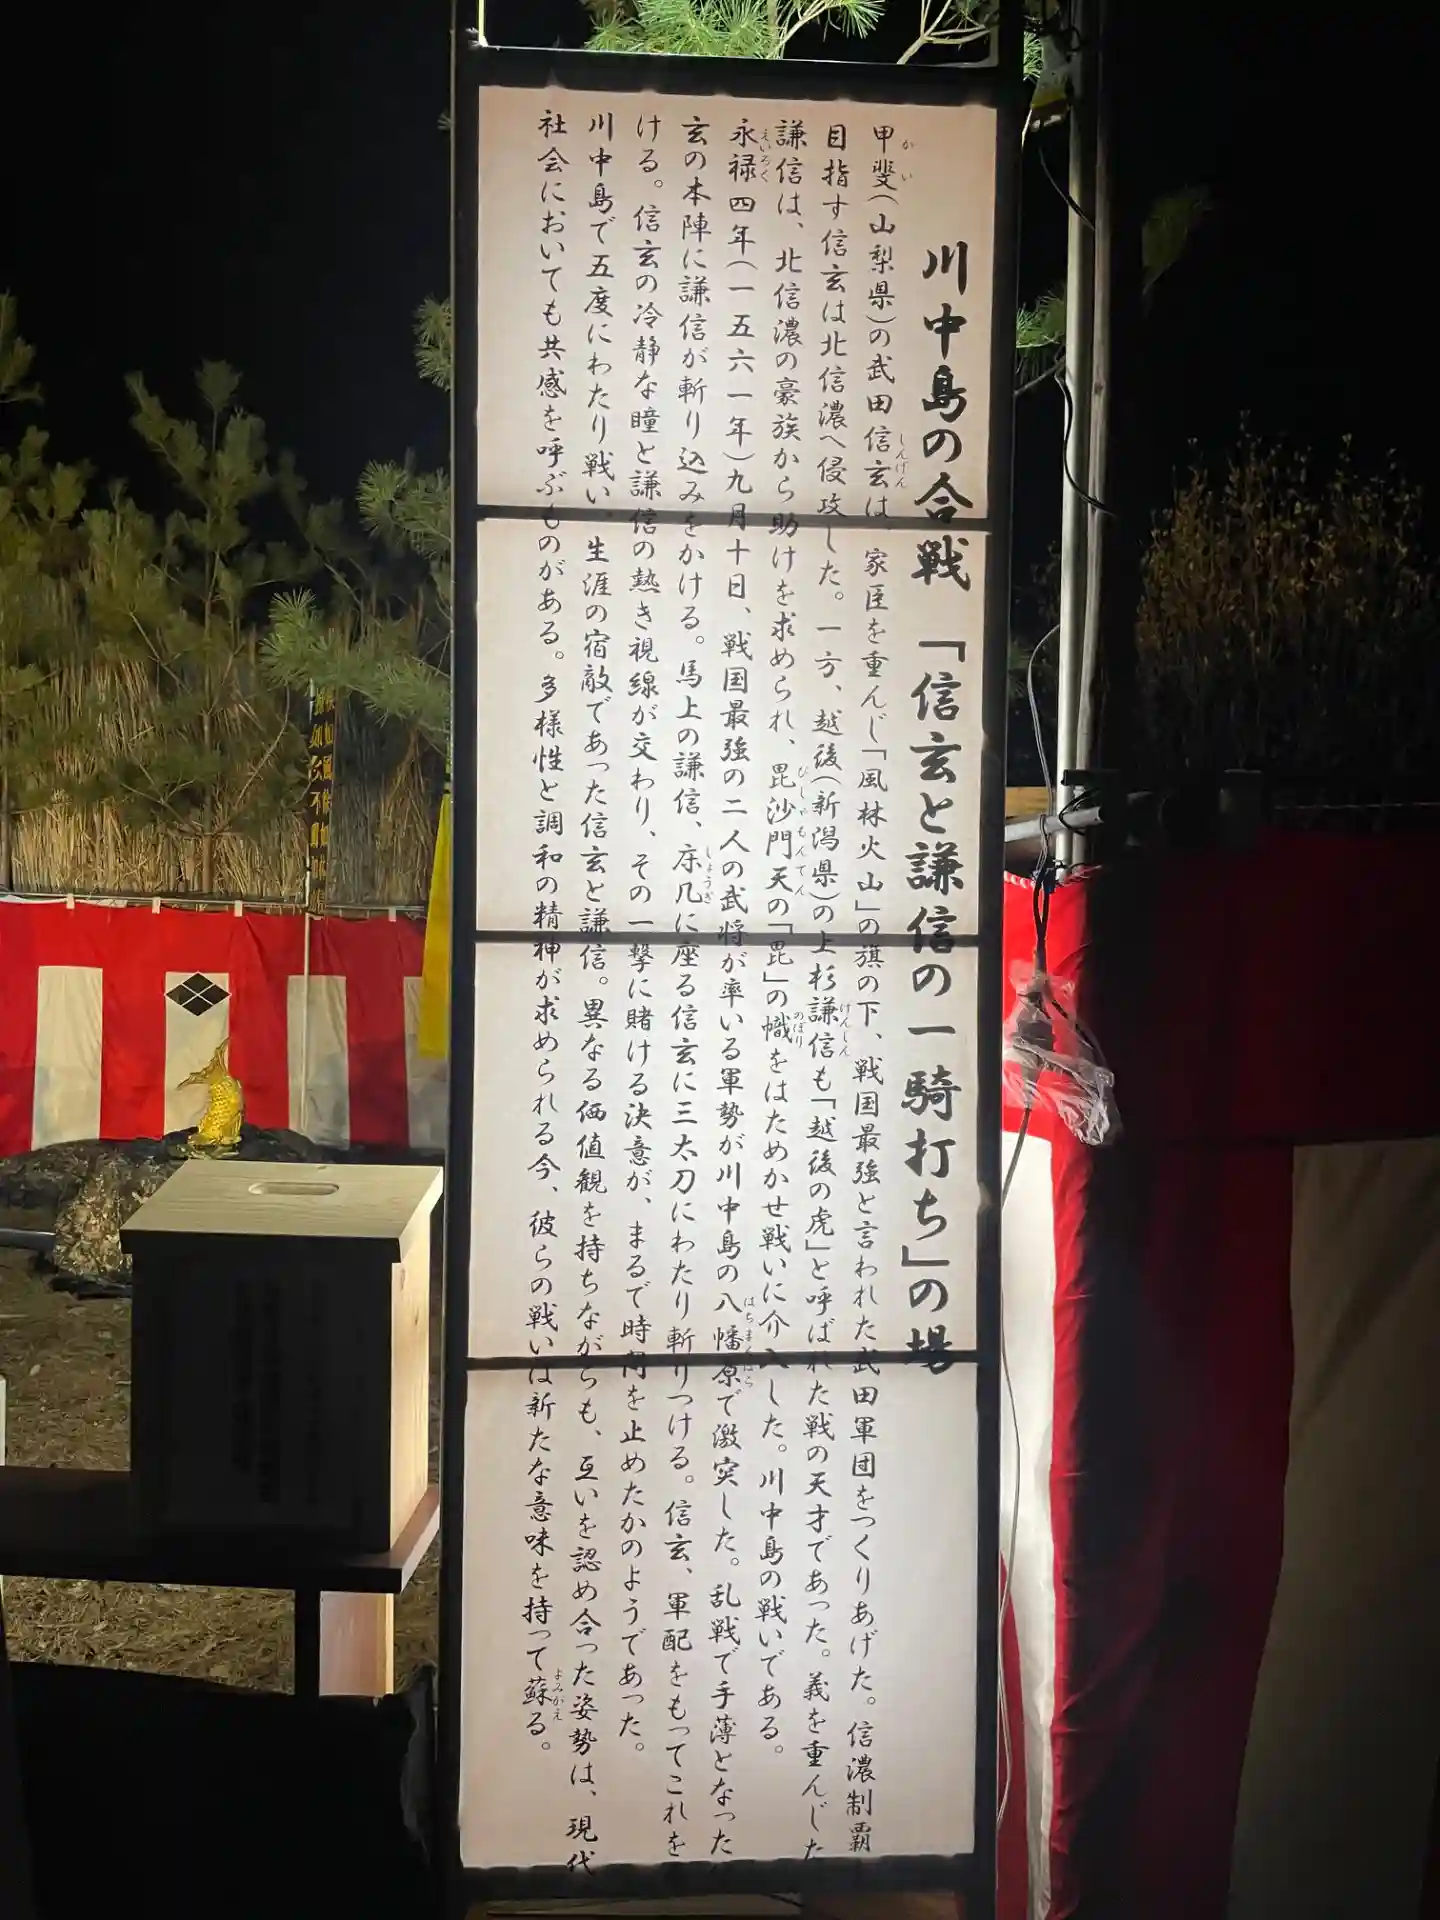 川中島の合戦 「信玄と謙信の一騎打ち」の場
甲斐(山梨県)の武田信玄は 家臣を重んじ「風林火山」の旗の下、戦国最強と言われた武田軍団をつくりあげた。信濃制覇
目指す信玄は北信濃へ侵攻した。一方、越後(新潟県)の上杉謙信も「越後の虎」と呼ばれた戦の天才であった。義を重んじた
謙信は、北信濃の豪族から助けを求められ、毘沙門天の「毘」の幟をはためかせ戦いに介入した。川中島の戦いである。
永禄四年(一五六一年)九月十日、戦国最強の二人の武将が率いる軍勢が川中島の八幡原で激突した。乱戦で手薄となった
玄の本陣に謙信が斬り込みをかける。馬上の謙信、床几に座る信玄に三太刀にわたり斬りつける。信玄、軍配をもってこれを
ける。信玄の冷静な瞳と謙信の熱き視線が交わり、その一撃に賭ける決意が、まるで時間を止めたかのようであった。
川中島で五度にわたり戦い、生涯の宿敵であった信玄と謙信。異なる価値観を持ちながらも、互いを認め合った姿勢は、現代
社会においても共感を呼ぶものがある。多様性と調和の精神が求められる今、彼らの戦いは新たな意味を持って蘇る。